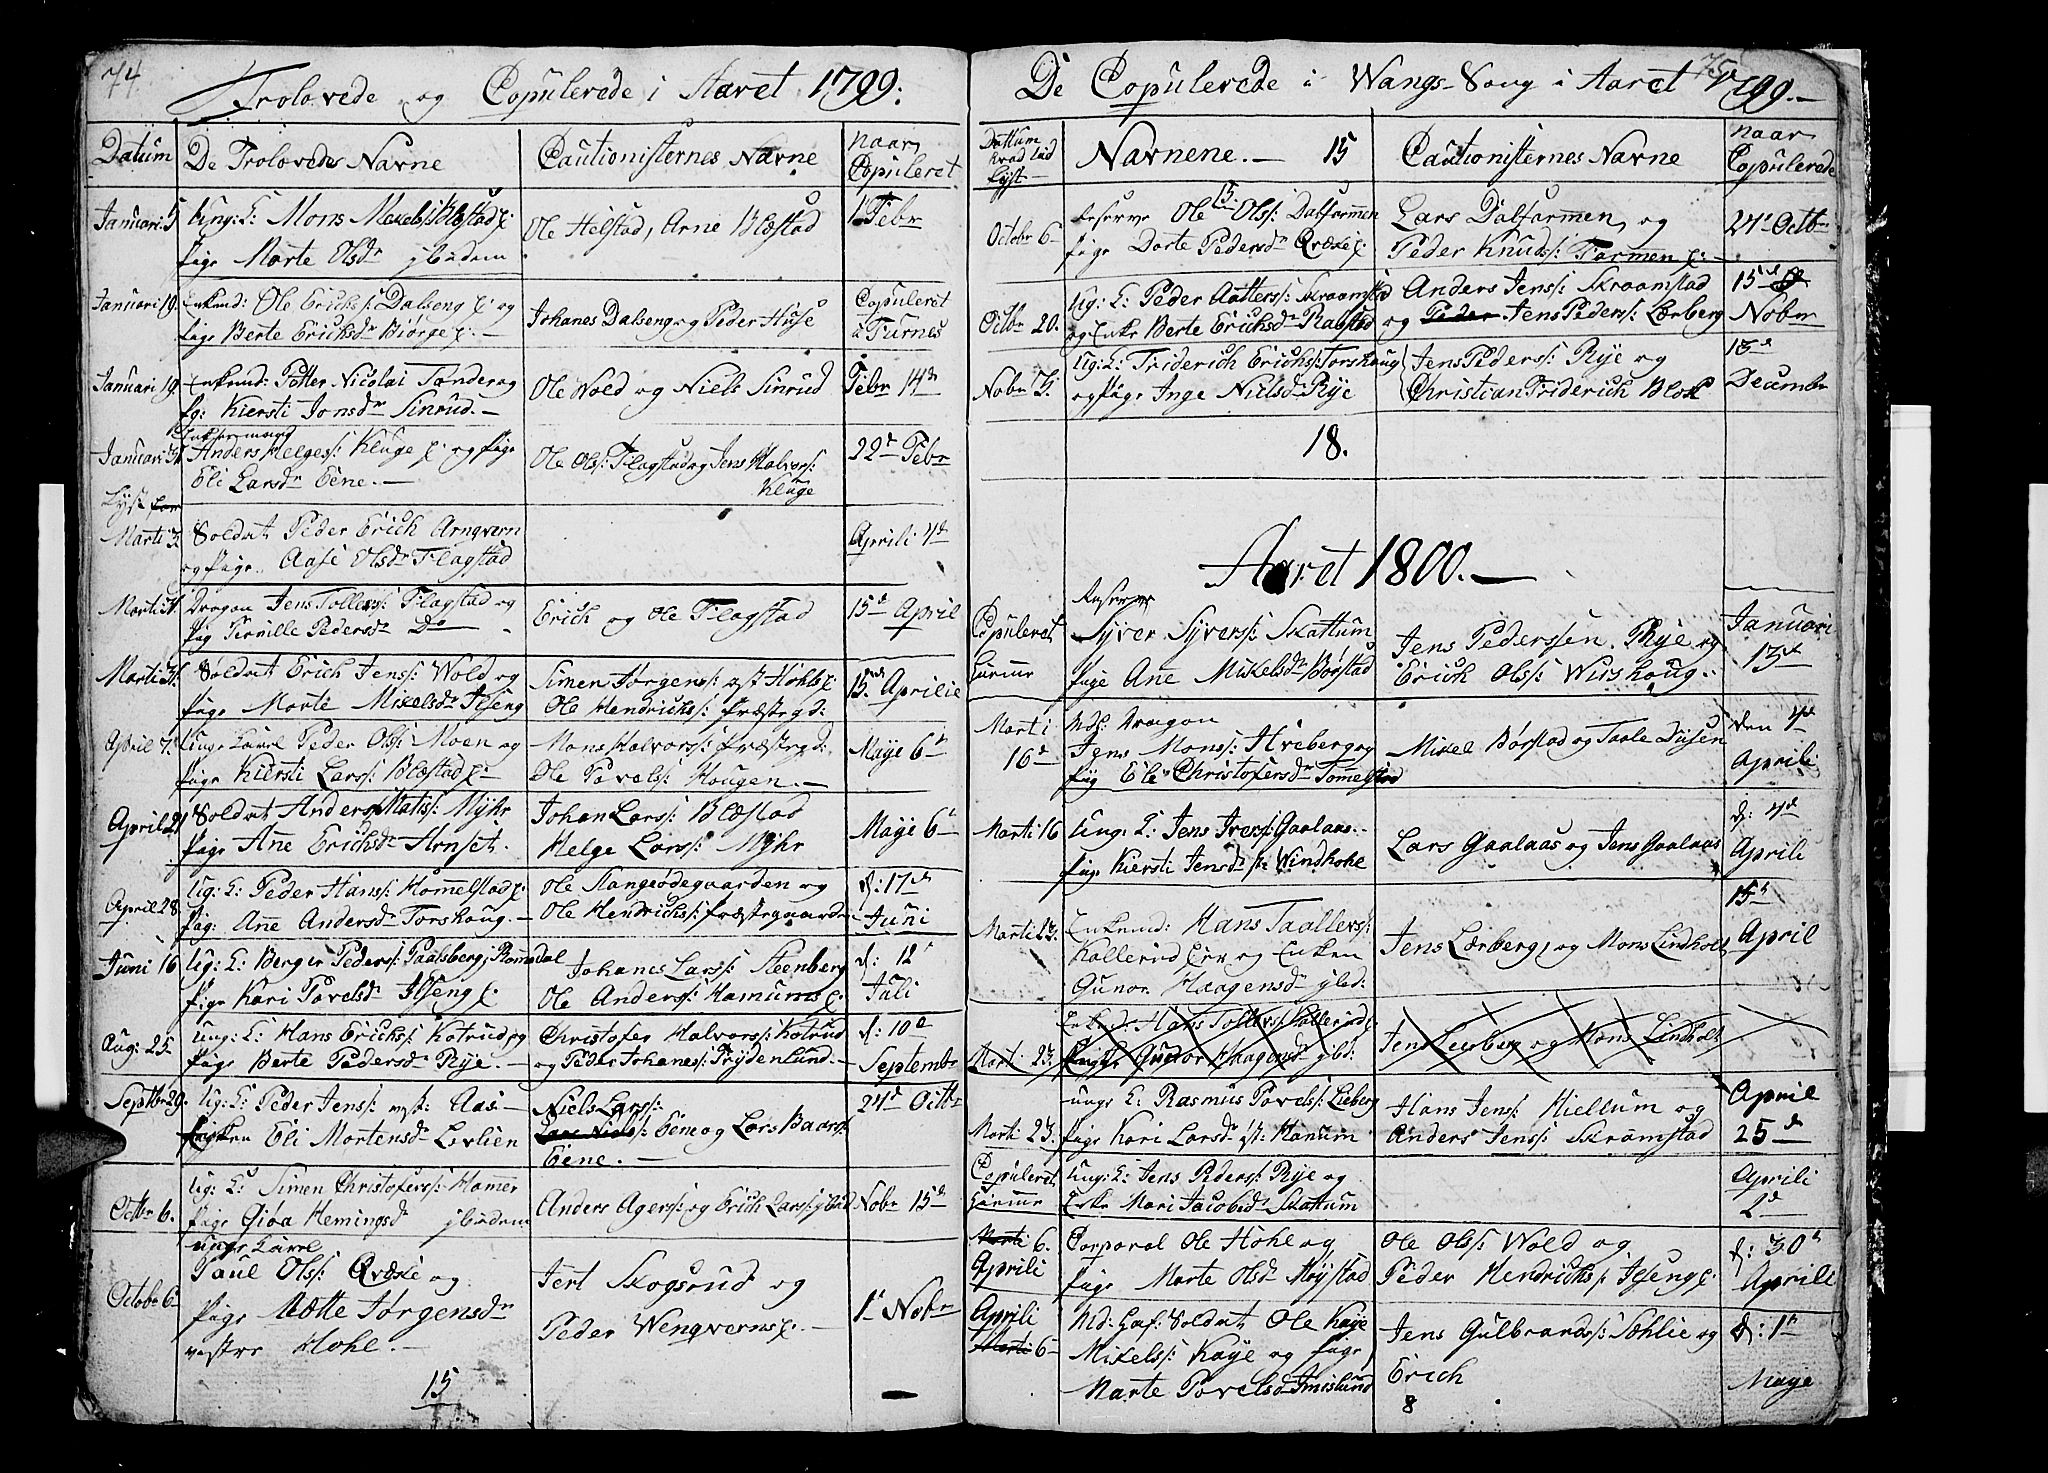 74.
Trolovede og Copulerede i Aaret 1799:
Datum De Trolovedes Navne Cautionisternes Navne Naar Copuleret
Januari 5 Ung: K: Mons Mikels: Blæstad
pige Marte Olsdr ibidem
Ole Helstad, Arne Blæstad
1 Febr
Januari 19. Enkmd: Ole Erichs: Dalseng og
pige Berte Erichsdr Biørge
Johanes Dalseng og Peder Huse
Copuleret i Furnes
Januari 19. Enkmd: Petter Nicolai Tander og
pg: Kiersti Jonsdr Sinrud.
Ole Wold og Niels Sinrud
Febr 14de
Januari 31 Anders Helges: Kluge og pige
Eli Larsdr Eene.
Ole Ols: Flagstad og Jens Halvors:
Kluge
22de Febr
Lyst
Marti 3. Soldat Peder Erich Arnqvern
og pige Aase Olsdr Flagstad
Aprili 4de
Marti 31. Dragon Jens Tollers: Flagstad og
pig Pernille Pedersdr Do
Erich og Ole Flagstad
15de April
Marti 31. Soldat Erich Jens: Wold og
pige Marte Mikelsdr Jeseng
Simen Jørgens: Hohle
Ole Hendrichs: Præstegd:
15de Aprilie
April 7. Unge Karl Peder Ols: Moen og
pige Kiersti Lars: Blæstad
Mons Halvors: Præstegd:
Ole Povels: Hougen.
Maye 6de
April 21 Soldat Anders Matis: Myhr
pige Ane Erichsdr Arnset.
Johan Lars: Blæstad
Helge Lars: Myhr
Maye 6de
April 28 Ug: K: Peder Hans: Hommelstad
pig: Ane Andersdr Torshoug.
Ole Stangeødegaarden og
Ole Hendrichs: Præstegaarden
d: 17de
Juni
Juni 16 Ug: K: Berger Peders: Paalsberg, Romedal
pige Kari Povelsdr Jeseng
Johanes Lars: Steenberg
Ole Anders: Hamum
d: 12
Juli
Aug: 25 Ung: K: Hans Erichs: Kotrud og
pige Berte Pedersdr Rye.
Christofer Halvors: Kotrud
og Peder Johanes: Frydenlund.
d: 10de
Septembr
Septbr 29. Ug: K: Peder Jens: Aas.
Enken Eli Mortensdr Løvlien
Niels Lars:
Eene og Lars Baars:
Eene.
24de Octbr
Octbr 6. Ug: K: Simen Christofers: Hammer
pige Giøa Hemingsdr ibidem
Anders Agers: og Erich Lars: ibid
Nobr 15de
Unge Karl
Octobr 6 Paul Ols: Qvæke og
pige Mætte Jørgensdr
vestre Hohl.
Jert Skogsrud og
Peder Wengverns
1de Nobr
15
75.
De Copulerede i Wangs Sogn i Aaret 1799.
Dattum hvad tid lyst Navnene. 15 Cautionisternes Navne Naar Copulerede
Octobr 6 Reserve Ole Ols: Dalfarmen
pige Dorte Pedersdr Qvæke
Lars Dalfarmen, og
Peder Knuds: Farmen
24de Octbr
Octbr 20. Ug: K: Peder Aatters: Skraamstad
og Enke Berte Erichsdr Rabstad
Anders Jens: Skraamstad
og Peder Jens Peders: Lærberg
15de
Nobr
Nobr 3. Ug: K: Friderich Erichs: Torshoug
og pige Inge Nielsdr Rye
Jens Peders: Rye og
Christian Friderich Blok
13de
Decembr
18.
Aaret 1800.
Copuleret Reserve
Syver Syvers: Skattum
pige Ane Mikelsdr Børstad
Jens Pederssen Rye og
Erich Ols: Wirshoug.
Januari
13de
Marti
16de
Dragon
Jens Mons: Hveberg og
pig Eli Christofersdr Tommelstad
Mikel Børstad og Taale Dusen
den 4de
Aprili
Marti 16 Ung: K: Jens Ivers: Gaalaas.
pige Kiersti Jensdr Windhohe
Lars Gaalaas og Jens Gaalaas
d: 4de
Aprili
Marti 23. Enkemd: Hans Taallers:
Kallerud og Enken
Gunor Haagensdr ibid:
Jens Lærberg, og Mons Lindholt
15de
April
Mart: 23. Enkmd: Hans Tollers: Kallerud
Gunor Haagensdr ibid:
Jens Leerberg og Mons Lindholt
Marti 23. Unge K: Rasmus Povels: Lieberg
pige Kari Larsdr Hanum
Hans Jens: Hiellum og
Anders Jens: Skramstad
April
25de
Copuleret Ung: K: Jens Peders: Rye og
Enke Mari Jacobsdr Skattum
Aprili
2de
Marti 6.
Aprili
Corporal Ole Hohl og
pige Marte Olsdr Høystad
Ole Ols: Wold og
Peder Hendrichs: Jeseng
d: 30te
Aprili
Aprili
Marti 6 Soldat Ole Kaye
Mikels: Kaye og pige
Marte Povelsdr Imislund
Jens Gulbrands: Sohlie og
Erich
d: 1te
Maye
8